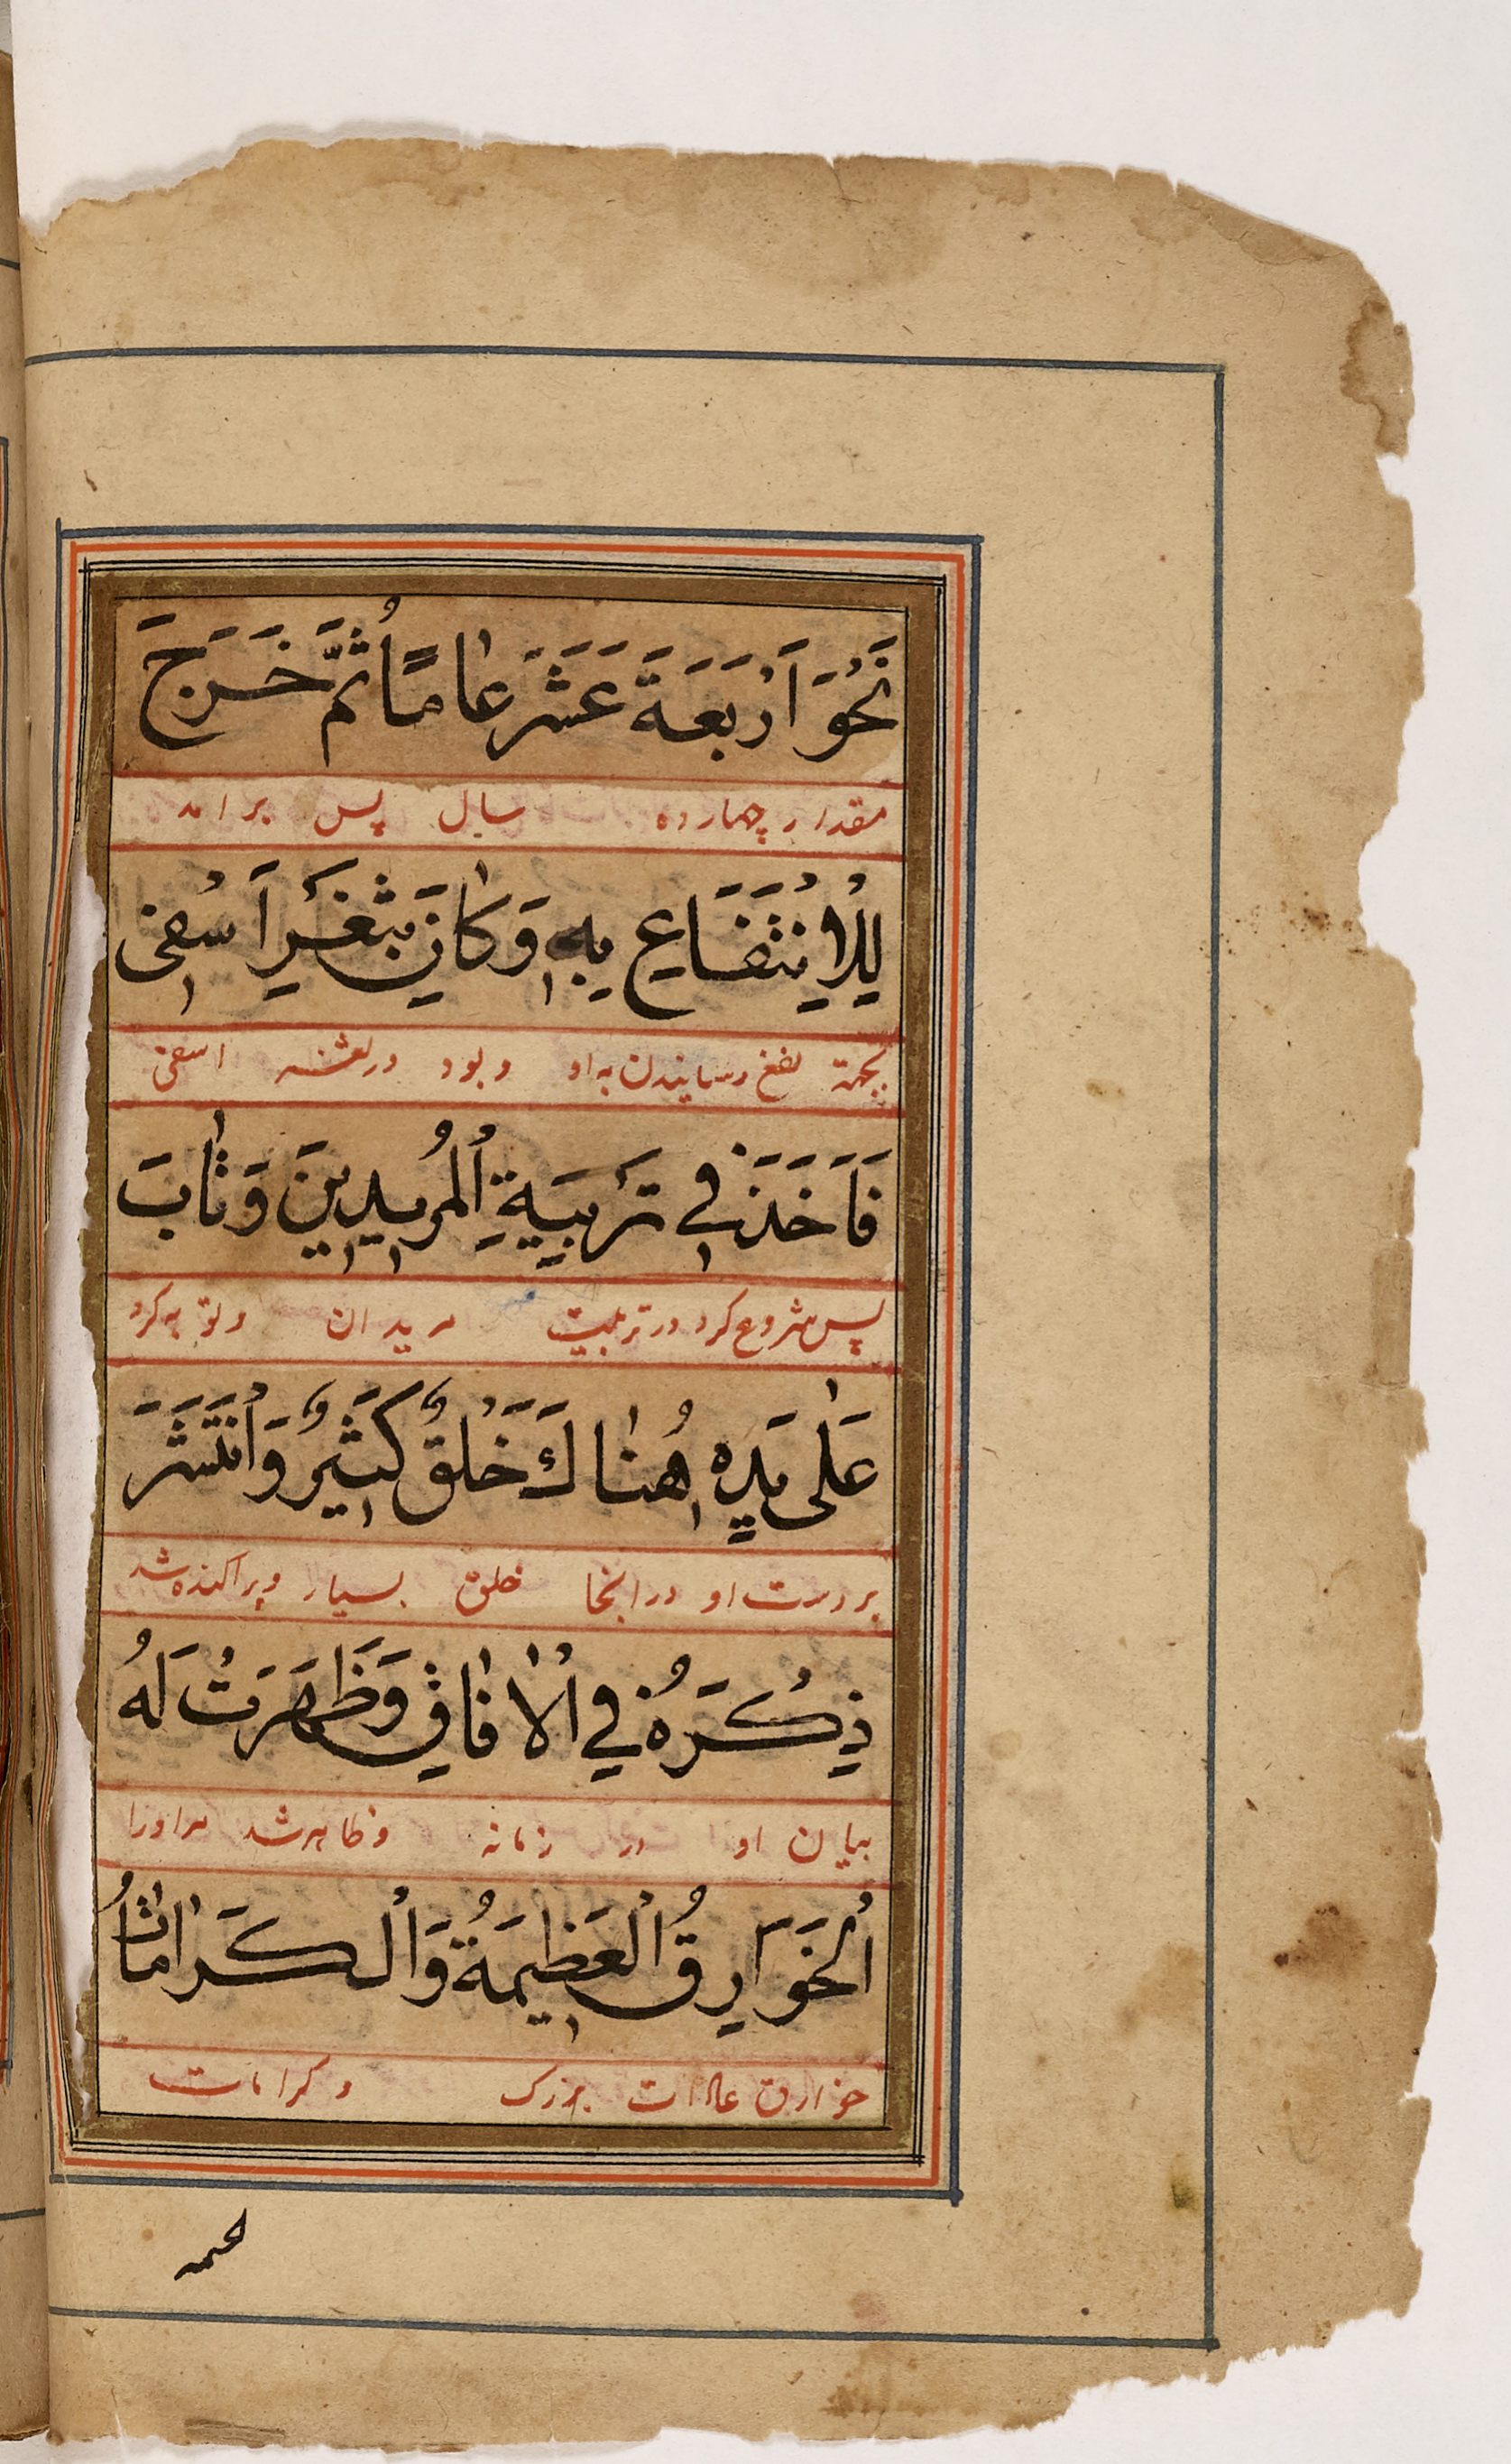 نَحْوَ اَرْبَعَةَ عَشَرَ عَامًا ثُمَّ خَرَجَ
مقدار چهارده سال پس برامد
لِلْاِنْتَفَاعِ بِهٖ وَكَانَ بِثَغْرِ اَسْفِىْ
بجهة نفع رسانیدن به او و بود در ثغر اسفی
فَاَخَذَ فِي تَرْبِيَةِ الْمُرِيدِينَ وَتَابَ
پس شروع کرد در تربیت مریدان و توبه کرد
عَلٰى يَدِهٖ هُنَاكَ خَلْقٌ كَثِيرٌ وَانْتَشَرَ
بر دست او در انجا خلق بسیار و پراکنده شد
ذِكْرُهُ فِي الْاٰفَاقِ وَظَهَرَتْ لَهُ
بیان او در زمانه و ظاهر شد مر او را
اَلْخَوَارِقُ الْعَظِيمَةُ وَالْكَرَامَاتُ
خوارق عادات بزرک و کرامات